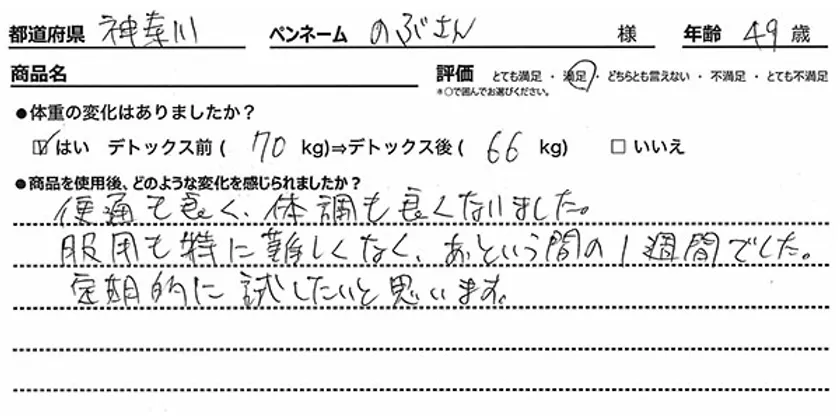 都道府県 神奈川 ペンネーム のぶさん 様 年齢 49 歳
商品名 評価 とても満足 ・ 満足 ・ どちらとも言えない ・ 不満足 ・ とても不満足
※○で囲んでお選びください。
●体重の変化はありましたか？
☑はい デトックス前( 70 kg)⇒デトックス後( 66 kg) □いいえ
●商品を使用後、どのような変化を感じられましたか？
便通も良く、体調も良くなりました。
服用も特に難しくなく、あっという間の1週間でした。
定期的に試したいと思います。